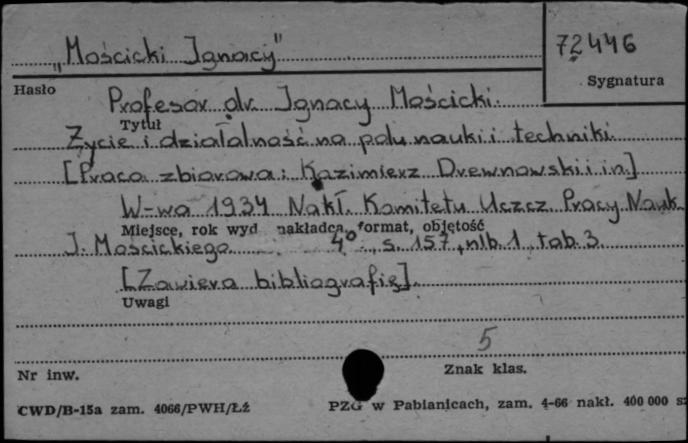 „Mościcki Ignacy"
72446
Sygnatura
Hasło
Profesor dr. Ignacy Mościcki.
Tytuł
Życie i działalność na polu nauki i techniki.
[Praca zbiorowa: Kazimierz Drewnowski i in.]
W-wa 1934 Nakł. Komitetu Uczcz. Pracy Nauk.
Miejsce, rok wyd nakładca, format, objętość
J. Mościckiego 4° s. 157, nlb. 1, tab. 3.
[Zawiera bibliografię].
Uwagi
5
Nr inw.
Znak klas.
CWD/B-15a zam. 4066/PWH/Łź
PZG w Pabianicach, zam. 4-66 nakł. 400 000 s